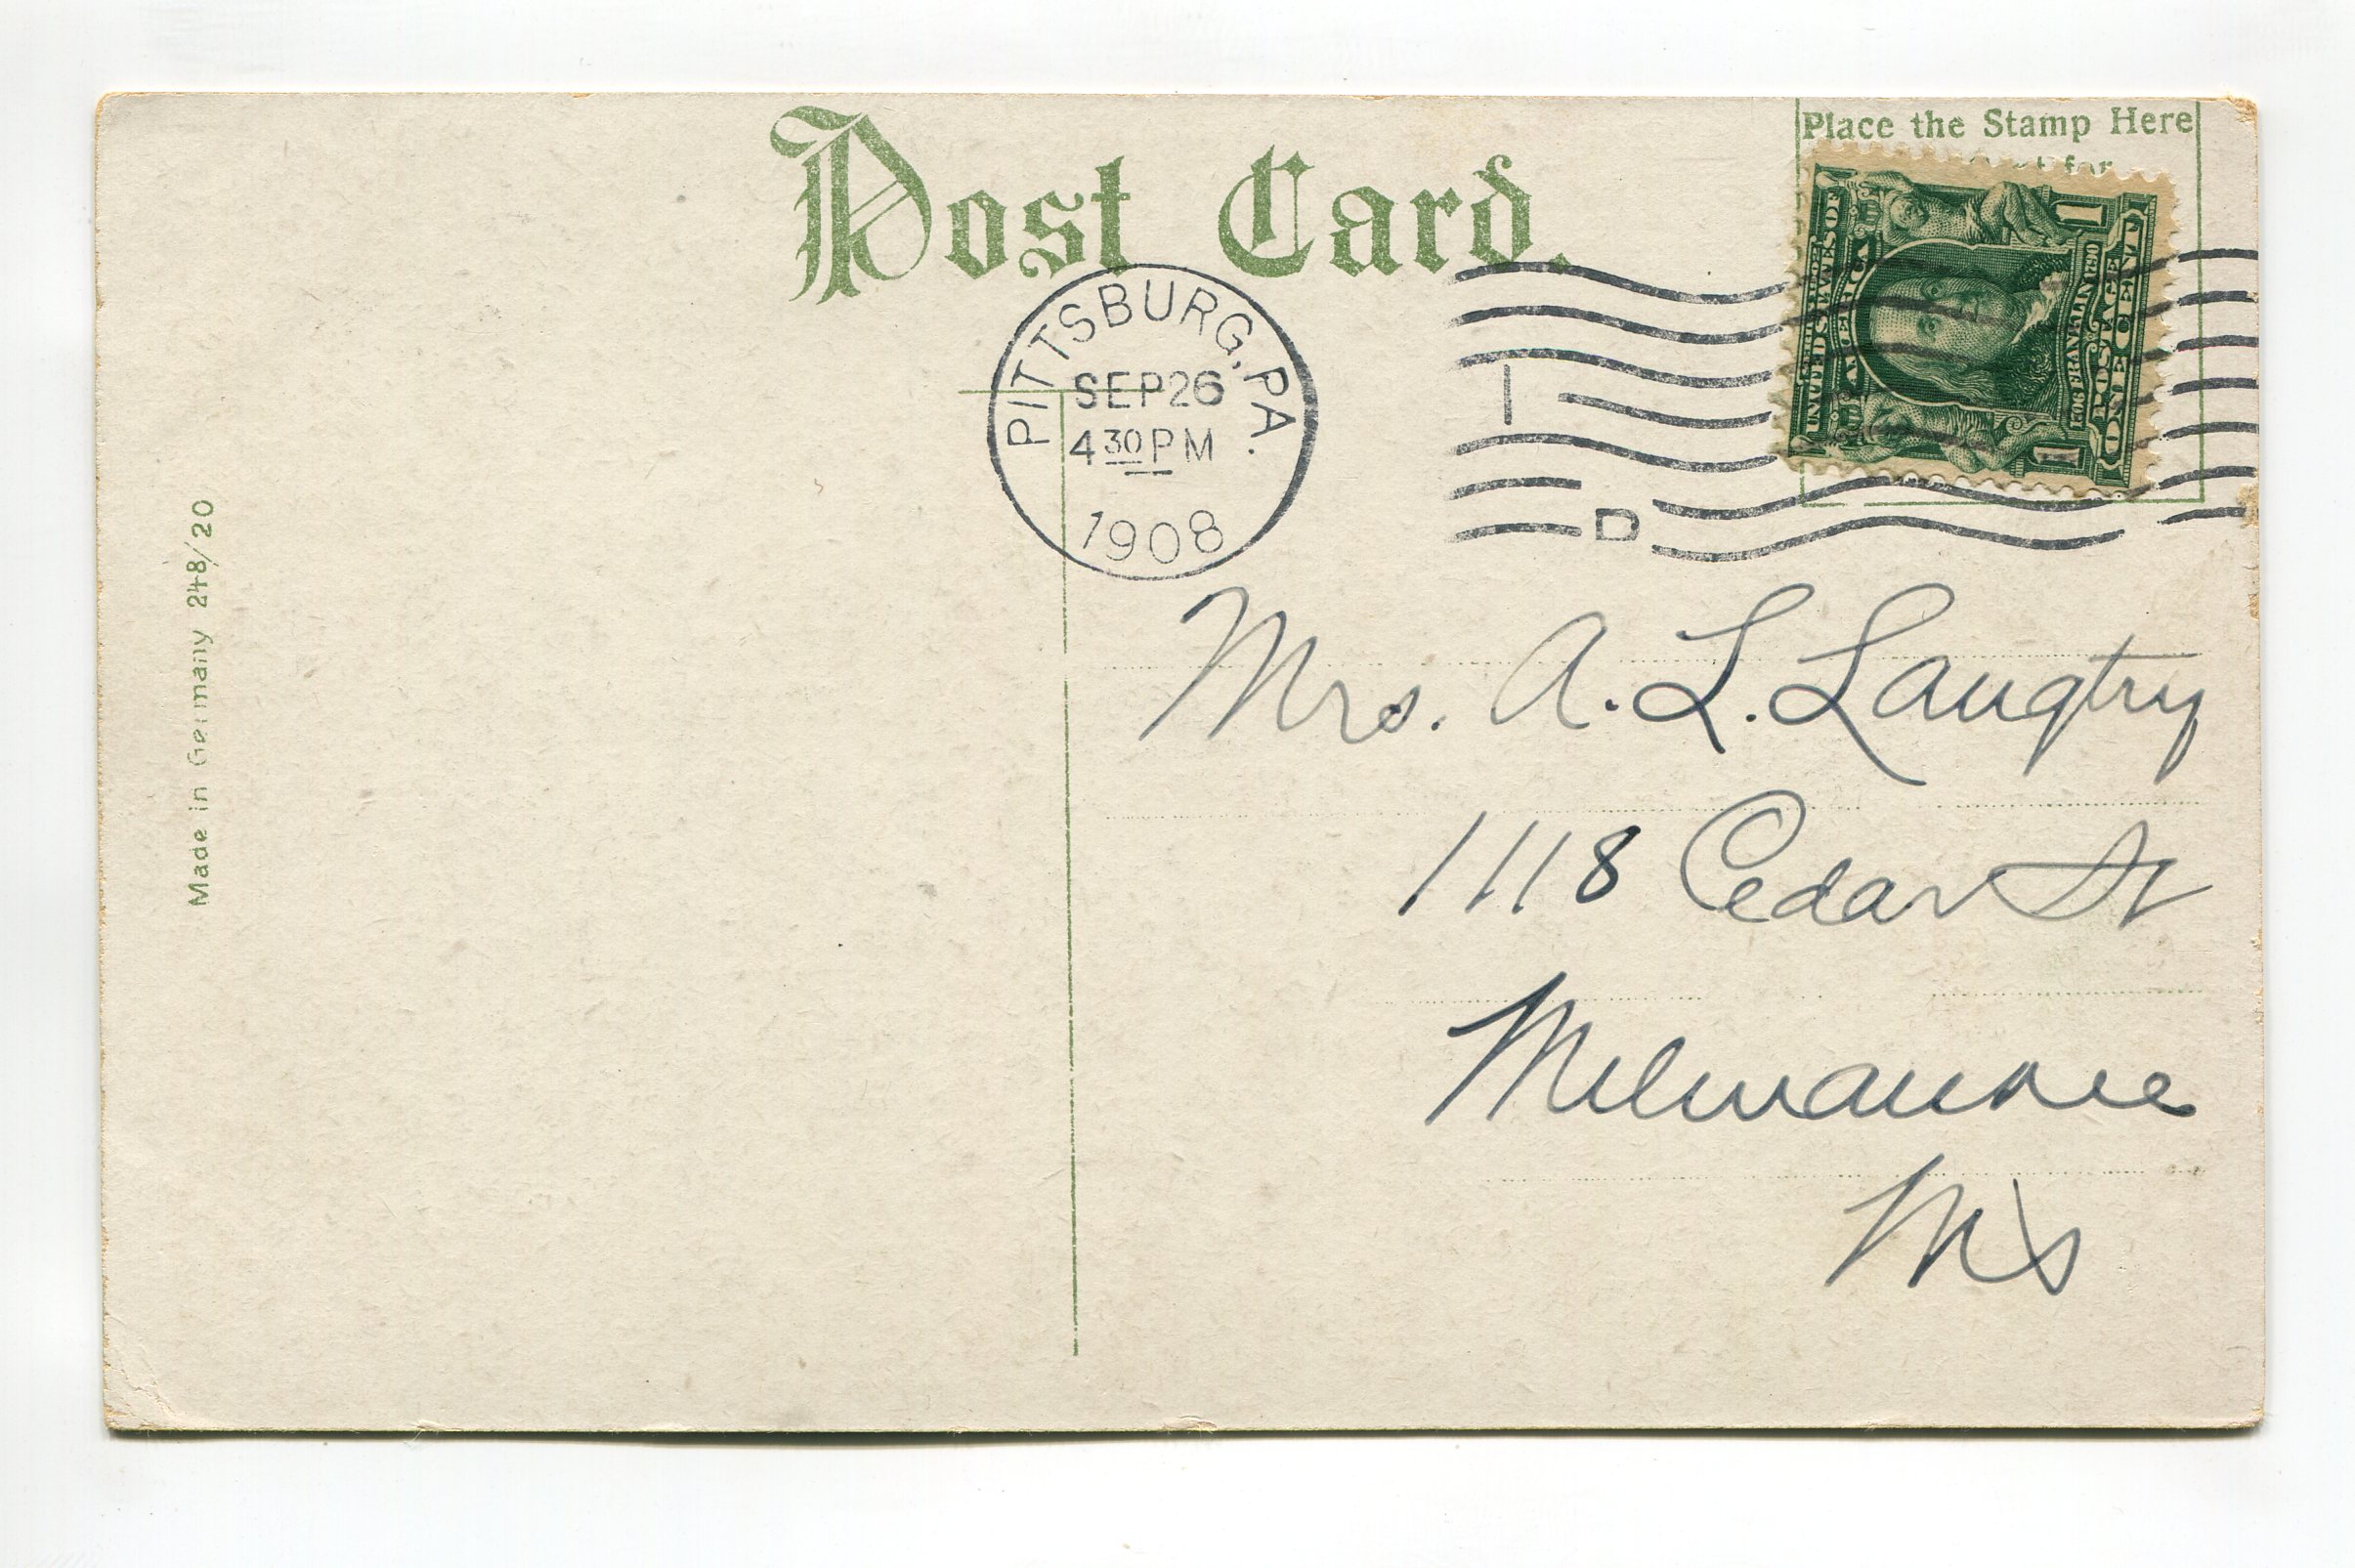 Post Card.
Place the Stamp Here
for
UNITED STATES OF
AMERICA
1
FRANKLIN
POSTAGE
ONE CENT
1
PITTSBURG, PA.
SEP 26
4 30 PM
1908
1
D
Made in Germany 248/20
Mrs. A. L. Langtry
1118 Cedar St
Milwaukee
Wis